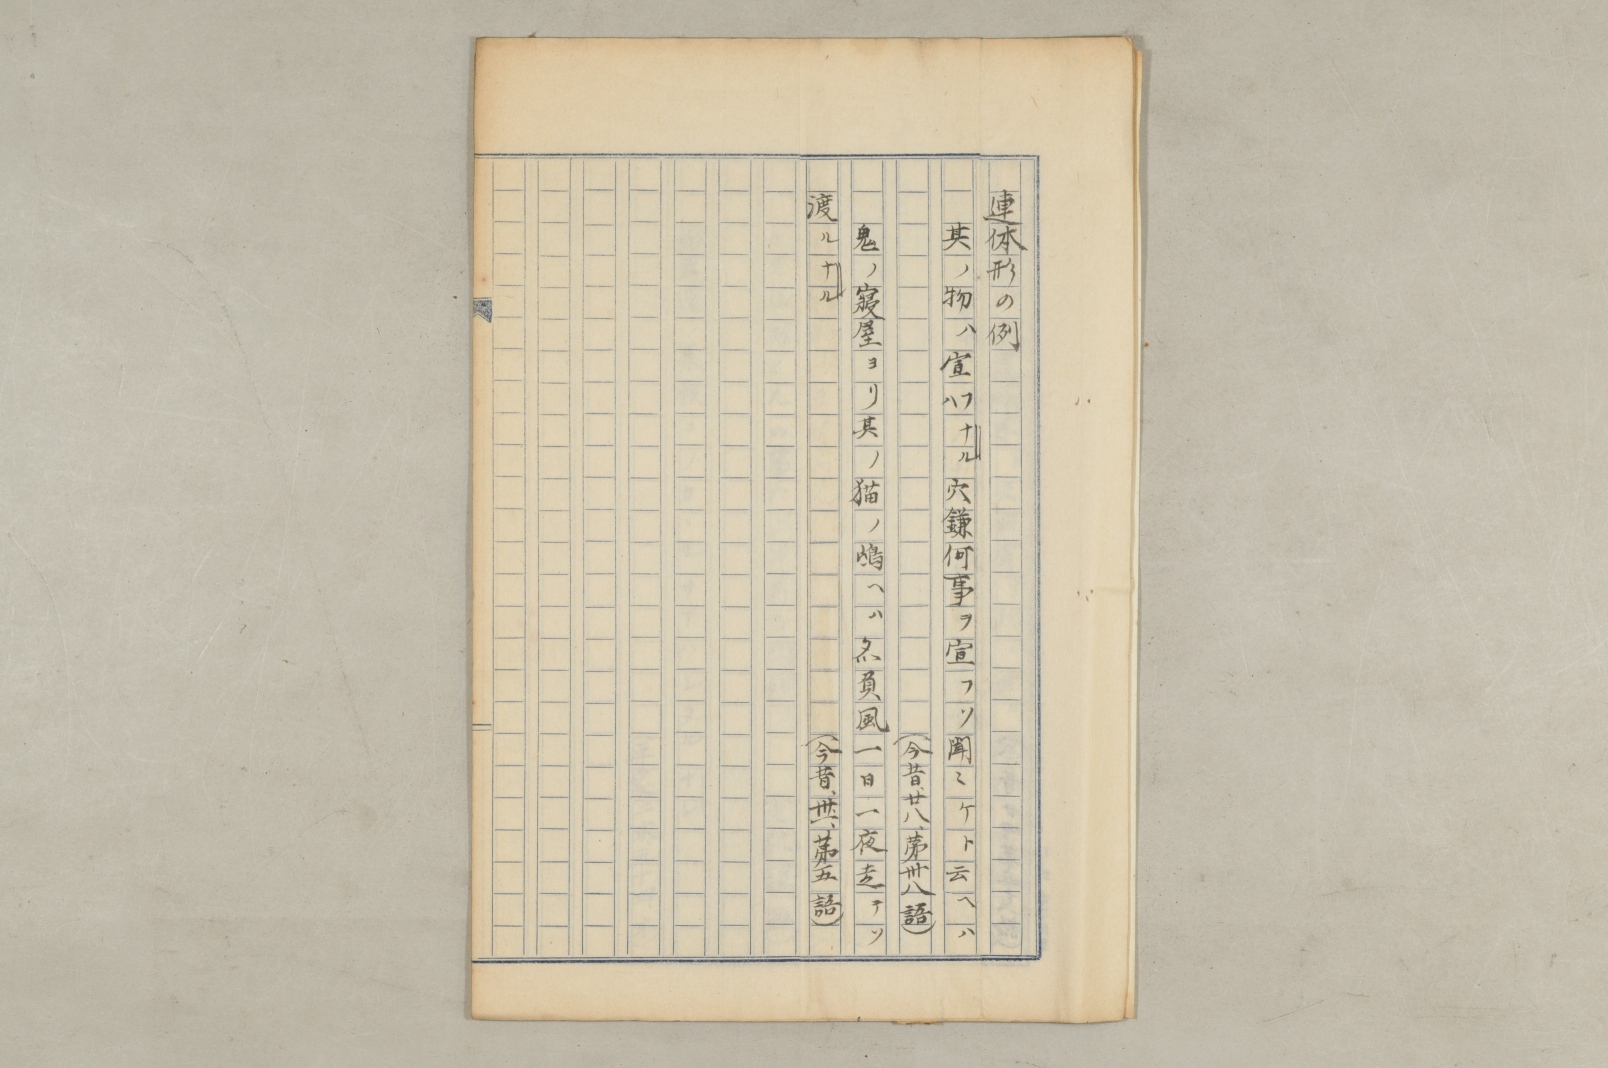 連体形の例
其ノ物ハ宣フハナル穴鎌何事ヲ宣フソ聞ミケト云ヘハ
(今昔、廿八、第卅八語)
鬼ノ寝屋ヨリ其ノ猫ノ嶋ヘハ負風一日一夜走テソ
渡ルナル
(今昔、卅一、第五語)